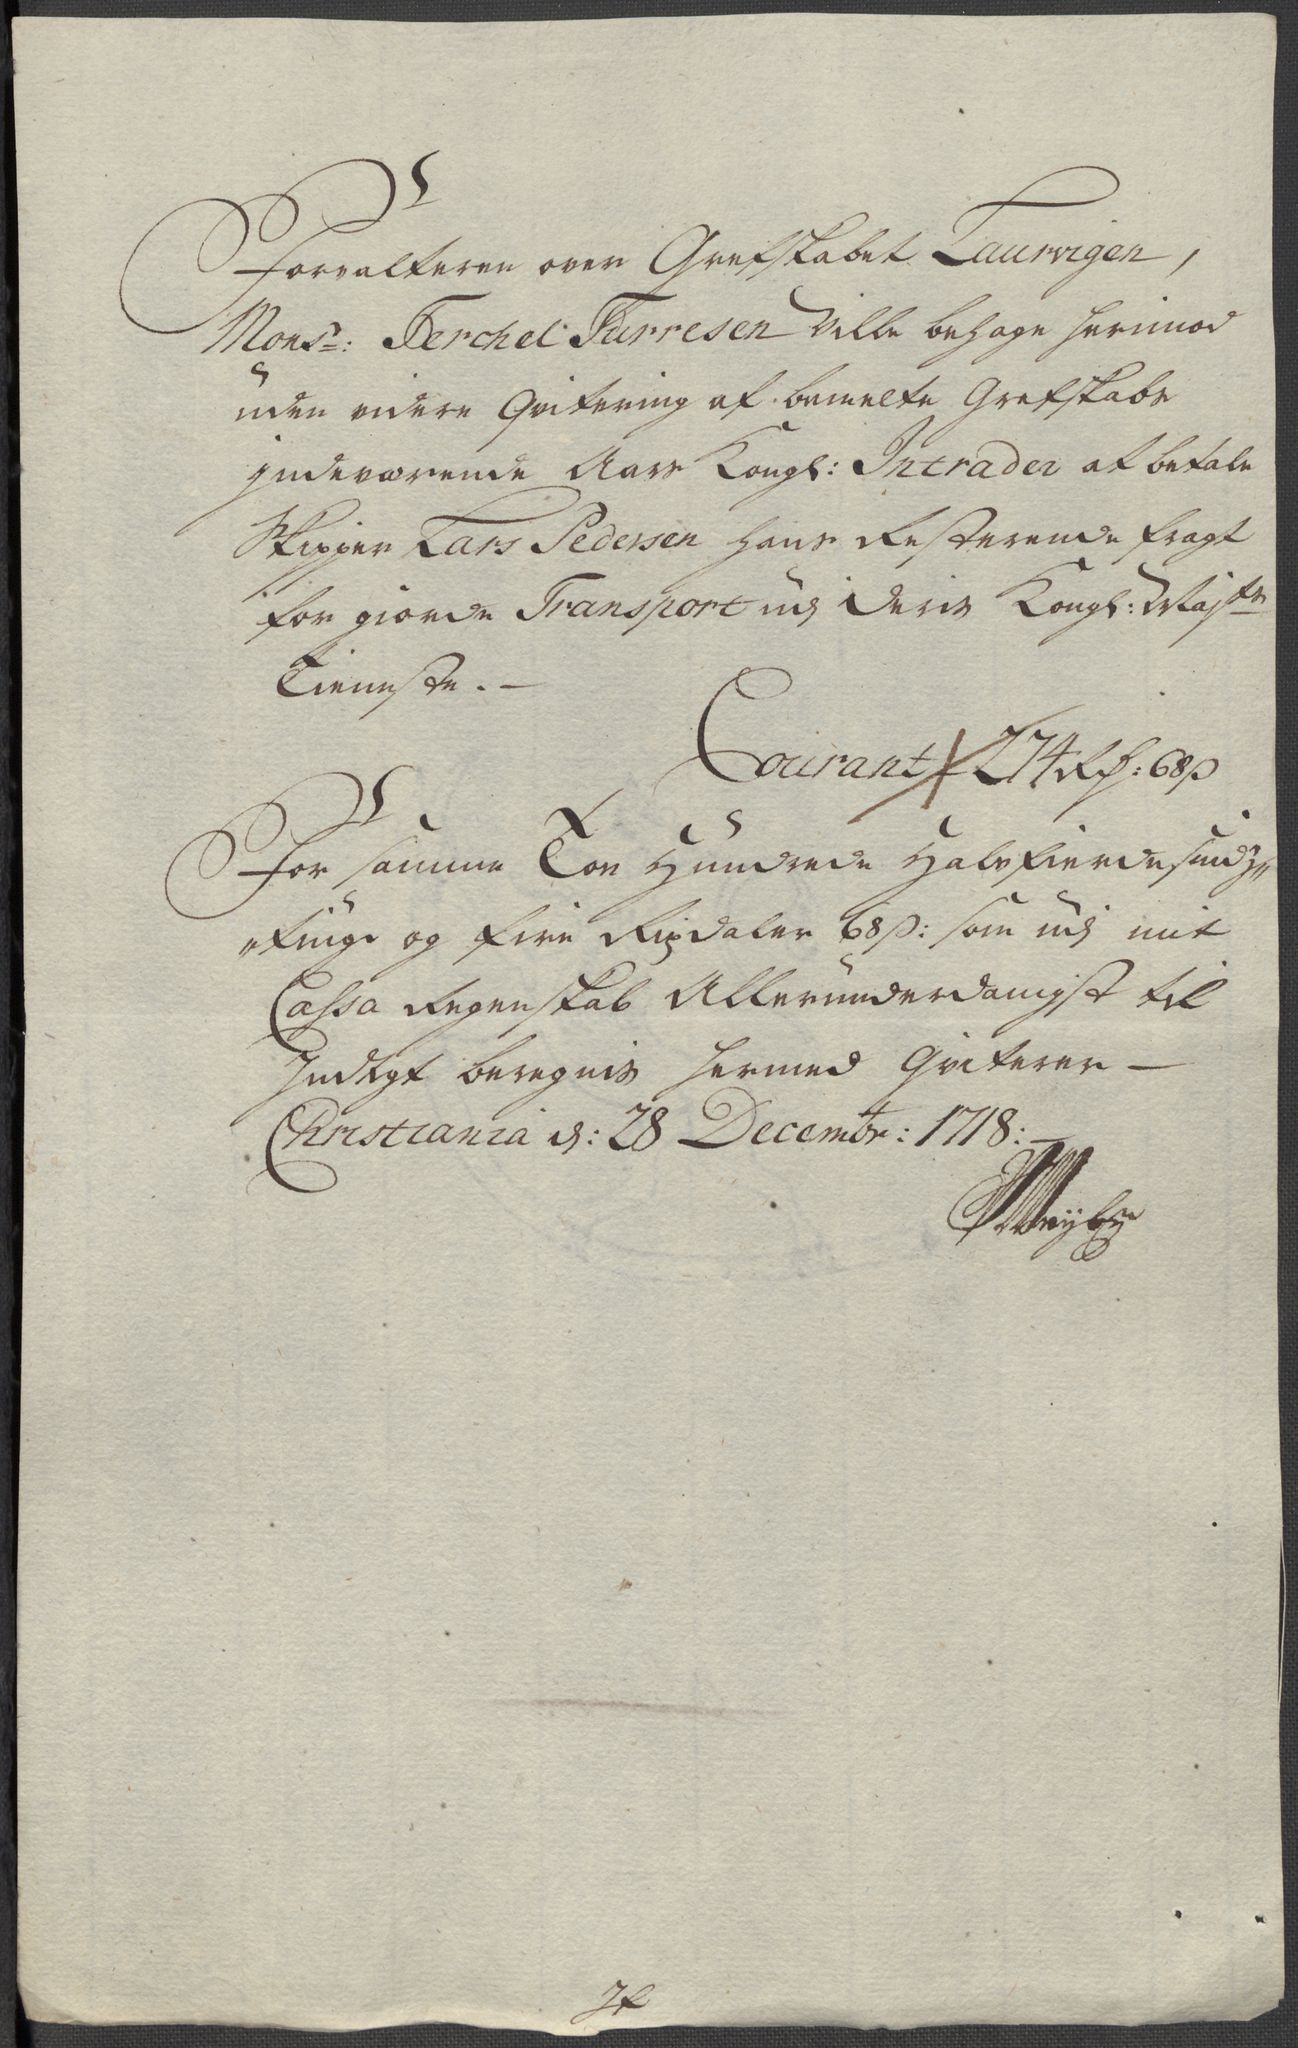 Forvalteren over Grefskabet Laurvigen,
Monsr: Terchel Turresen Ville behage herimod
uden videre Qvitering af bemelte Grefskabs
indeværende Aars Kongl: Intrader at betale
Skipper Lars Pedersen hans Resterende fragt
for giorde Transport udj Deris Kongl: Majts
Tieneste. –
Courant 274 Rd: 68 s
For samme Toe Hundrede Halvfierdesinds„
„tiuge og fire Rixdaler 68 s: som udj mit
Cassa Regenskab Allerunderdanigst til
Indtegt beregnis hermed Qviterer –
Christiania d: 28 Decembr: 1718: –